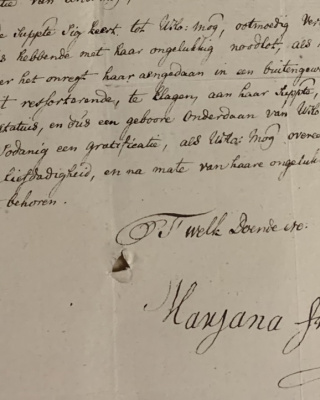 de Supp^te Sig keert tot UEdo: Mog, ootmoedig ver
s hebbende met haar ongelukkig noodlot, als
er het onregt haar aengedaan in een buitengew
t resforterende, te klagen, aan haar Supp^te,
statuis, en dus een geboore Onderdaan van UEdo
Sodanig een gratificatie, als UEdo: Mog overee
liefdadigheid, en na mate van haare ongeluk
behoren.
T welk Doende etc.
Marjana